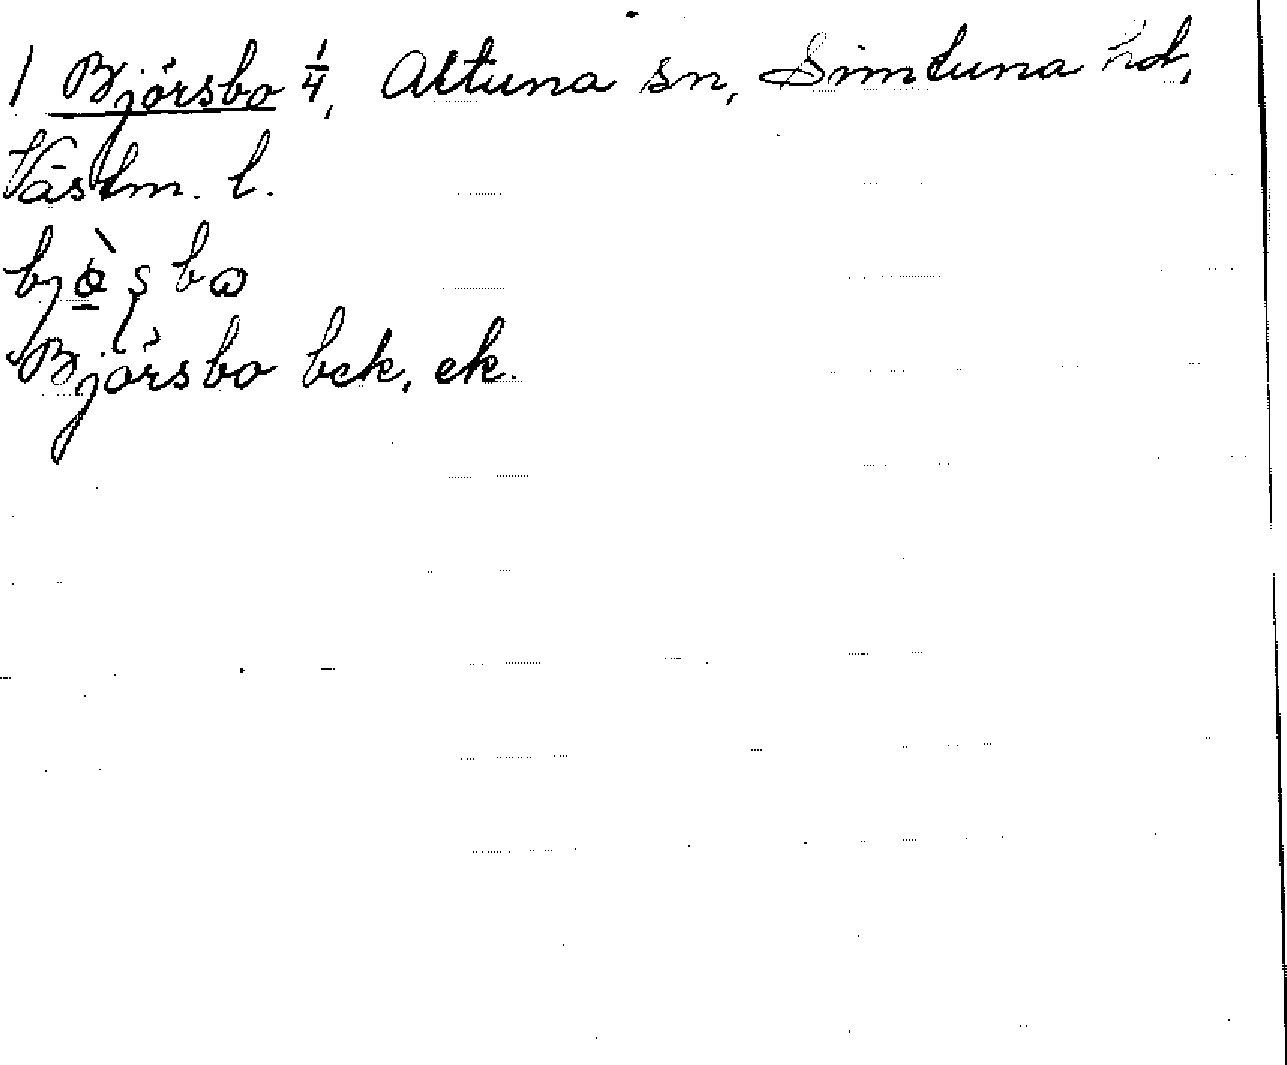 1 Bjórsbo 1/4, Altuna sn, Simtuna hd,
Västm. l.
Bjórsbo bck, ek.